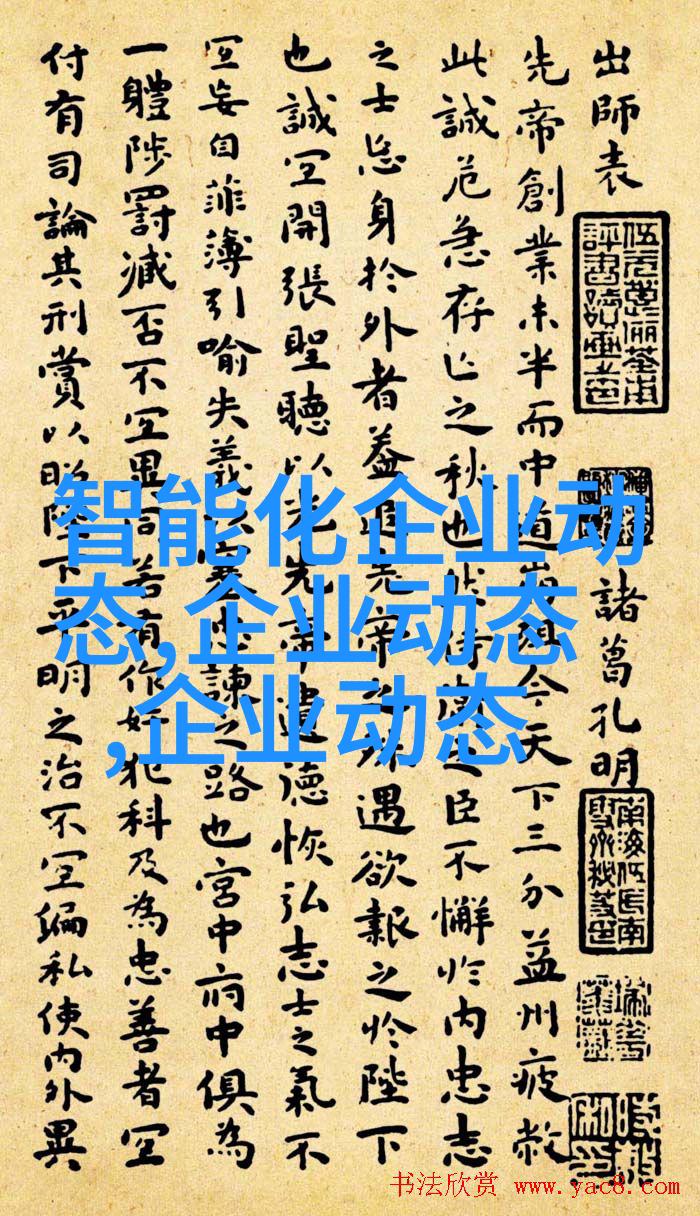 出師表 諸葛孔明
先帝創業未半而中道崩殂今天下三分益州疲敝
此誠危急存亡之秋也然侍衛之臣不懈於内忠志
之士忘身於外者蓋追先帝之殊遇欲報之於陛下
也誠宜開張聖聽以光先帝遺德恢弘志士之氣不
宜妄自菲薄引喻失義以塞忠諫之路也宮中府中俱為
一體陟罰臧否不宜異同若有作奸犯科及為忠善者宜
付有司論其刑賞以昭陛下平明之治不宜偏私使内外異
智能化企业动
态,企业动态
,企业动态
书法欣赏 www.yac8.com